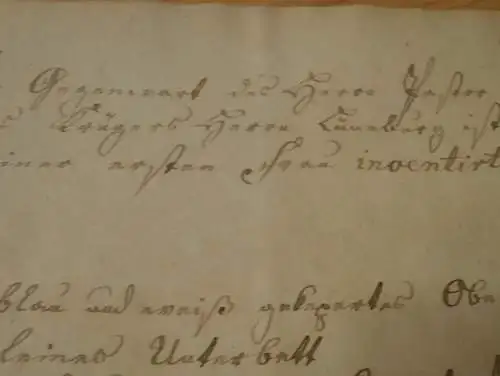 Gegenwart des Herrn Pastor
s Krügers Herrn Luneburg ist
einer ersten Frau inventirt
blau und weiß gekepertes Obe
leines Unterbett